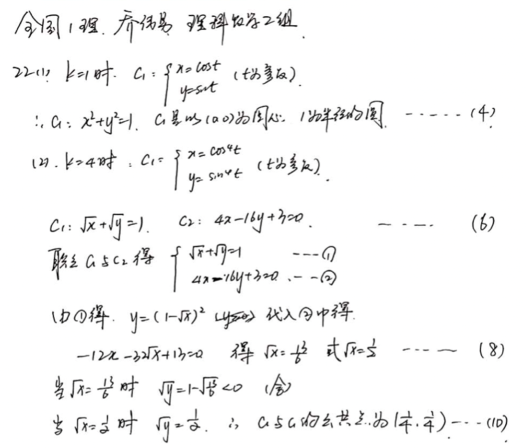 全国1理. 乔伟男 理科数学2组
22(1) k=1时. C₁: { x=cost y=sint (t为参数).
∴ C₁: x²+y²=1. C₁是以(0,0)为圆心. 1为半径的圆. ····· (4)
(2). k=4时. C₁: { x=cos⁴t y=sin⁴t (t为参数).
C₁: √x+√y=1. C₂: 4x-16y+3=0. — — · (6)
联立C₁与C₂得 { √x+√y=1 ---① 4x-16y+3=0 . --②
由①得. y=(1-√x)² 代入②中得.
-12x-32√x+13=0 得 √x=13/6 或√x=1/2 ···· — (8)
当√x=13/6时 √y=1-√13/6<0 (舍)
当√x=1/2时 √y=1/2. ∴ C₁与C₁的公共点为(1/4,1/4)---(10)